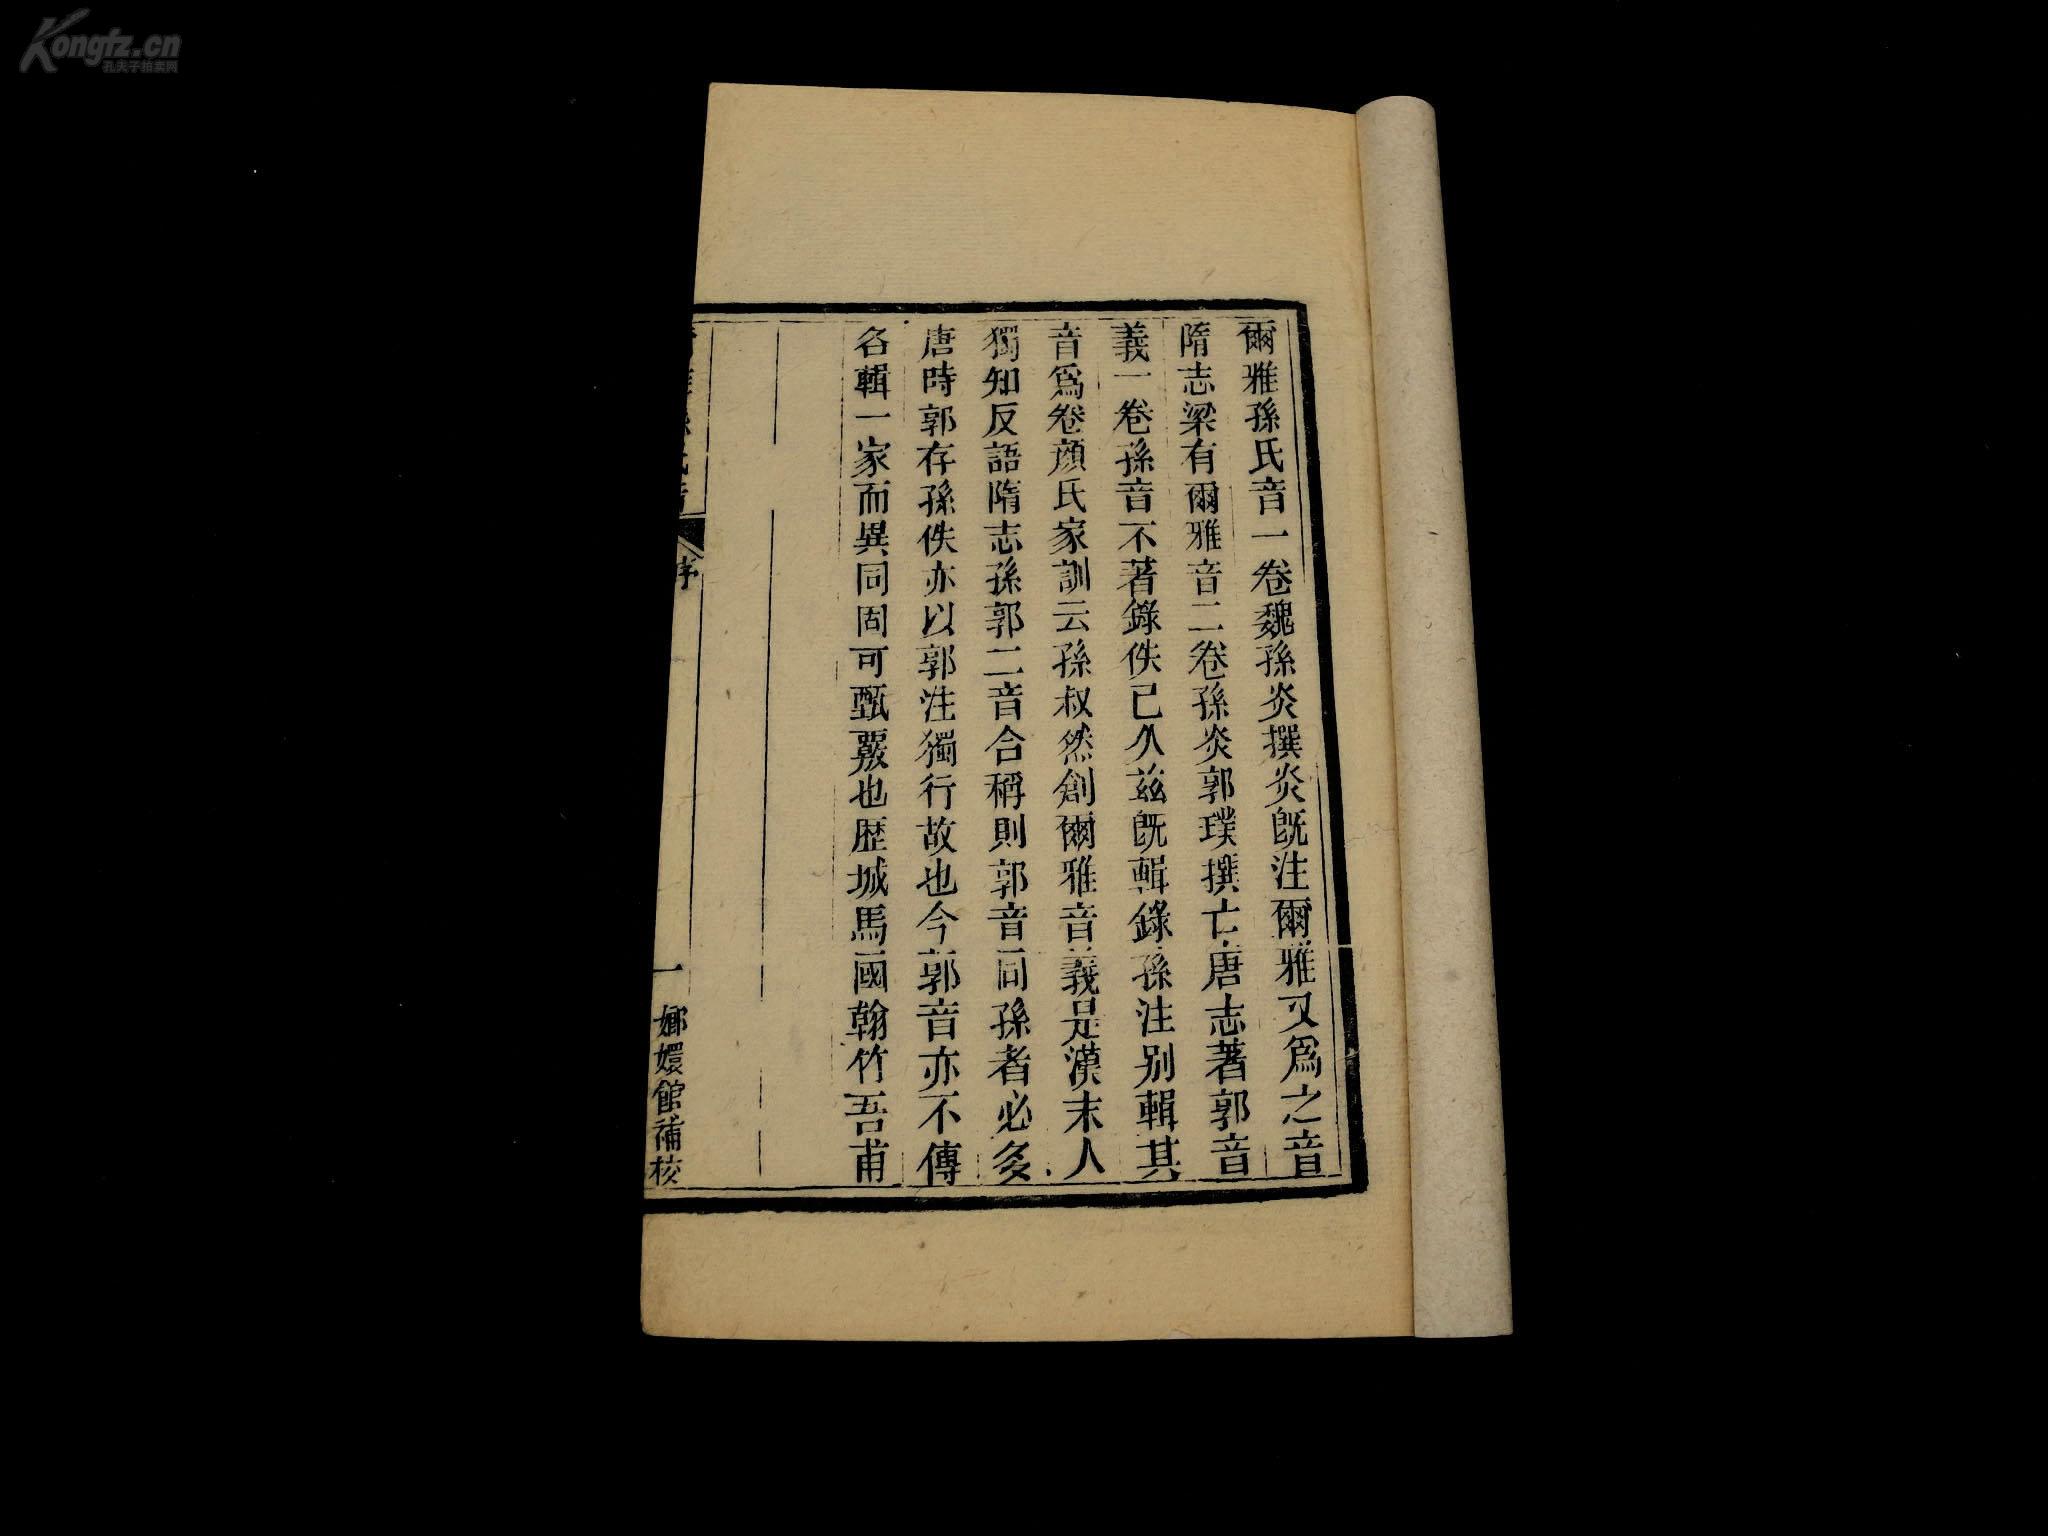 爾雅孫氏音一卷魏孫炎撰炎旣注爾雅又爲之音
隋志梁有爾雅音二卷孫炎郭璞撰亡唐志著郭音
義一卷孫音不著錄佚已久茲旣輯錄孫注别輯其
音爲卷顔氏家訓云孫叔然創爾雅音義是漢末人
獨知反語隋志孫郭二音合稱則郭音同孫者必多
唐時郭存孫佚亦以郭注獨行故也今郭音亦不傳
各輯一家而異同固可甄覈也歷城馬國翰竹吾甫
序
一
嫏嬛館補校
Kongfz.cn
孔夫子拍卖网